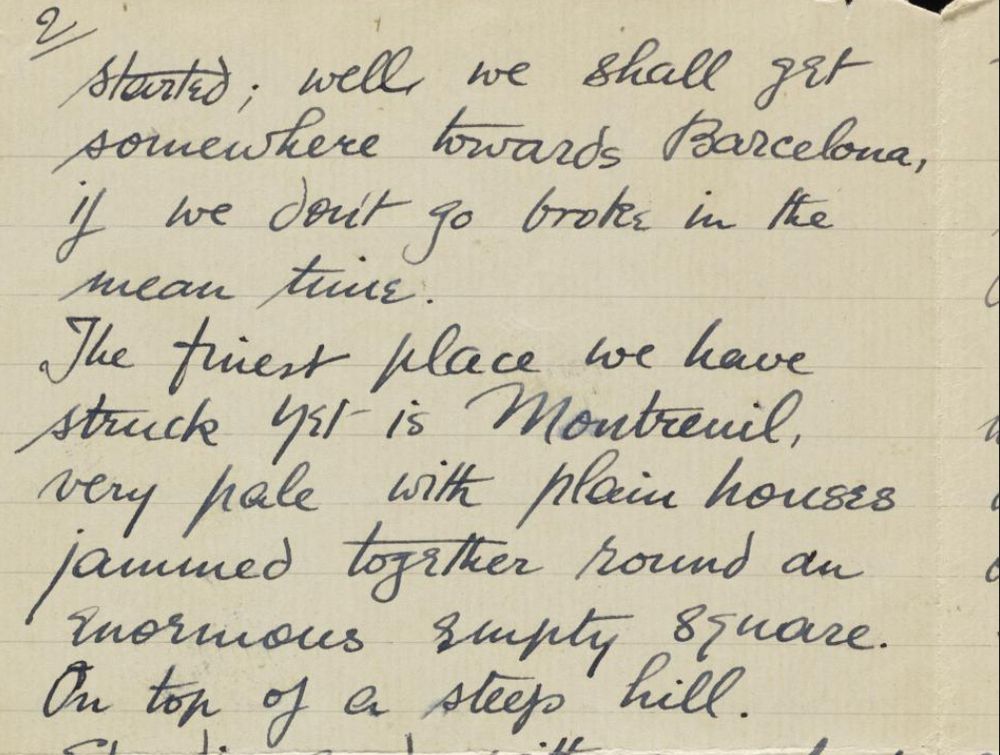 2
started; well, we shall get
somewhere towards Barcelona,
if we don't go broke in the
mean time.
The finest place we have
struck yet is Montreuil,
very pale with plain houses
jammed together round an
enormous empty square.
On top of a steep hill.